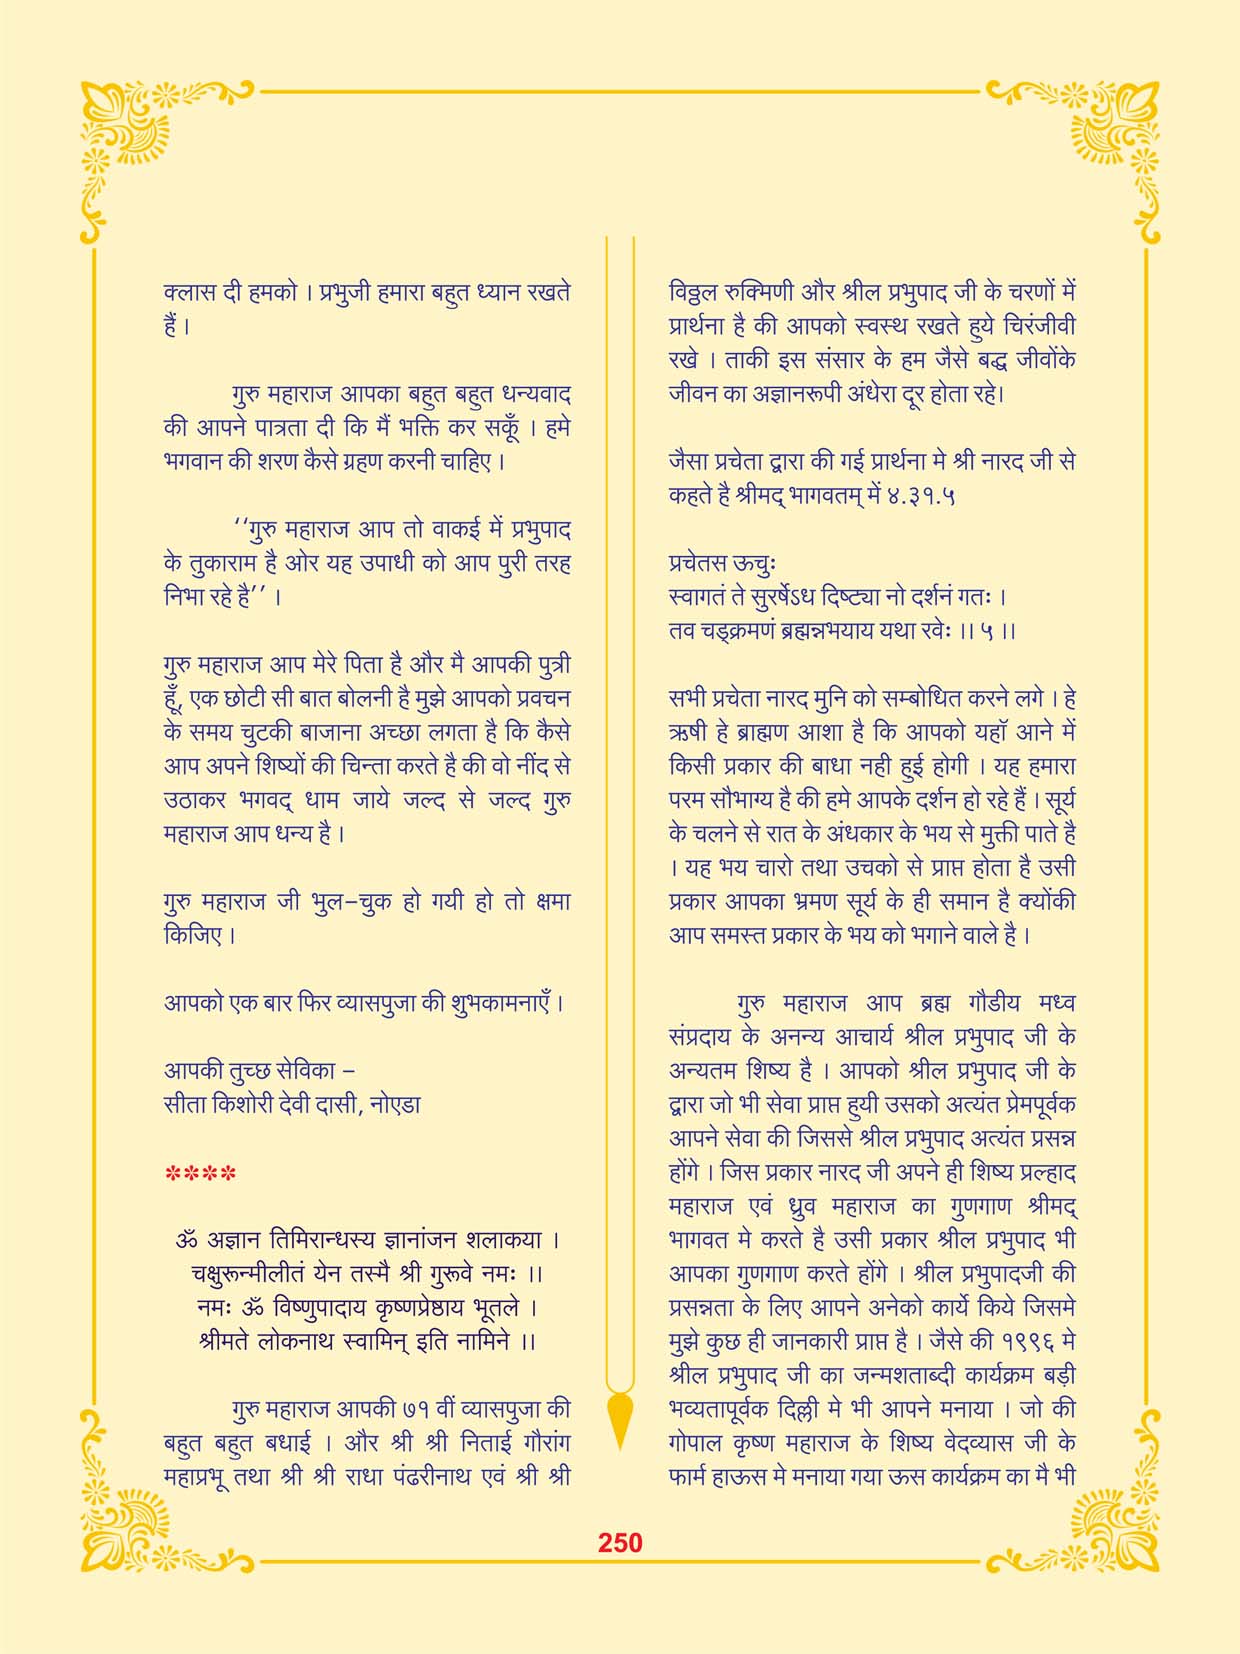 क्लास दी हमको । प्रभुजी हमारा बहुत ध्यान रखते
हैं ।
गुरु महाराज आपका बहुत बहुत धन्यवाद
की आपने पात्रता दी कि मैं भक्ति कर सकूँ । हमे
भगवान की शरण कैसे ग्रहण करनी चाहिए ।
‘‘गुरु महाराज आप तो वाकई में प्रभुपाद
के तुकाराम है ओर यह उपाधी को आप पुरी तरह
निभा रहे है’’ ।
गुरु महाराज आप मेरे पिता है और मै आपकी पुत्री
हूँ, एक छोटी सी बात बोलनी है मुझे आपको प्रवचन
के समय चुटकी बाजाना अच्छा लगता है कि कैसे
आप अपने शिष्यों की चिन्ता करते है की वो नींद से
उठाकर भगवद् धाम जाये जल्द से जल्द गुरु
महाराज आप धन्य है ।
गुरु महाराज जी भुल-चुक हो गयी हो तो क्षमा
किजिए ।
आपको एक बार फिर व्यासपुजा की शुभकामनाएँ ।
आपकी तुच्छ सेविका -
सीता किशोरी देवी दासी, नोएडा
****
ॐ अज्ञान तिमिरान्धस्य ज्ञानांजन शलाकया ।
चक्षुरून्मीलीतं येन तस्मै श्री गुरूवे नमः ।।
नमः ॐ विष्णुपादाय कृष्णप्रेष्ठाय भूतले ।
श्रीमते लोकनाथ स्वामिन् इति नामिने ।।
गुरु महाराज आपकी ७१ वीं व्यासपुजा की
बहुत बहुत बधाई । और श्री श्री निताई गौरांग
महाप्रभू तथा श्री श्री राधा पंढरीनाथ एवं श्री श्री
विठ्ठल रुक्मिणी और श्रील प्रभुपाद जी के चरणों में
प्रार्थना है की आपको स्वस्थ रखते हुये चिरंजीवी
रखे । ताकी इस संसार के हम जैसे बद्ध जीवोंके
जीवन का अज्ञानरूपी अंधेरा दूर होता रहे।
जैसा प्रचेता द्वारा की गई प्रार्थना मे श्री नारद जी से
कहते है श्रीमद् भागवतम् में ४.३१.५
प्रचेतस ऊचुः
स्वागतं ते सुरर्षेऽध दिष्ट्या नो दर्शनं गतः ।
तव चङ्क्रमणं ब्रह्मन्नभयाय यथा रवेः ।। ५ ।।
सभी प्रचेता नारद मुनि को सम्बोधित करने लगे । हे
ऋषी हे ब्राह्मण आशा है कि आपको यहॉ आने में
किसी प्रकार की बाधा नही हुई होगी । यह हमारा
परम सौभाग्य है की हमे आपके दर्शन हो रहे हैं । सूर्य
के चलने से रात के अंधकार के भय से मुक्ती पाते है
। यह भय चारो तथा उचको से प्राप्त होता है उसी
प्रकार आपका भ्रमण सूर्य के ही समान है क्योंकी
आप समस्त प्रकार के भय को भगाने वाले है ।
गुरु महाराज आप ब्रह्म गौडीय मध्व
संप्रदाय के अनन्य आचार्य श्रील प्रभुपाद जी के
अन्यतम शिष्य है । आपको श्रील प्रभुपाद जी के
द्वारा जो भी सेवा प्राप्त हुयी उसको अत्यंत प्रेमपूर्वक
आपने सेवा की जिससे श्रील प्रभुपाद अत्यंत प्रसन्न
होंगे । जिस प्रकार नारद जी अपने ही शिष्य प्रल्हाद
महाराज एवं ध्रुव महाराज का गुणगाण श्रीमद्
भागवत मे करते है उसी प्रकार श्रील प्रभुपाद भी
आपका गुणगाण करते होंगे । श्रील प्रभुपादजी की
प्रसन्नता के लिए आपने अनेको कार्ये किये जिसमे
मुझे कुछ ही जानकारी प्राप्त है । जैसे की १९९६ मे
श्रील प्रभुपाद जी का जन्मशताब्दी कार्यक्रम बड़ी
भव्यतापूर्वक दिल्ली मे भी आपने मनाया । जो की
गोपाल कृष्ण महाराज के शिष्य वेदव्यास जी के
फार्म हाऊस मे मनाया गया ऊस कार्यक्रम का मै भी
250